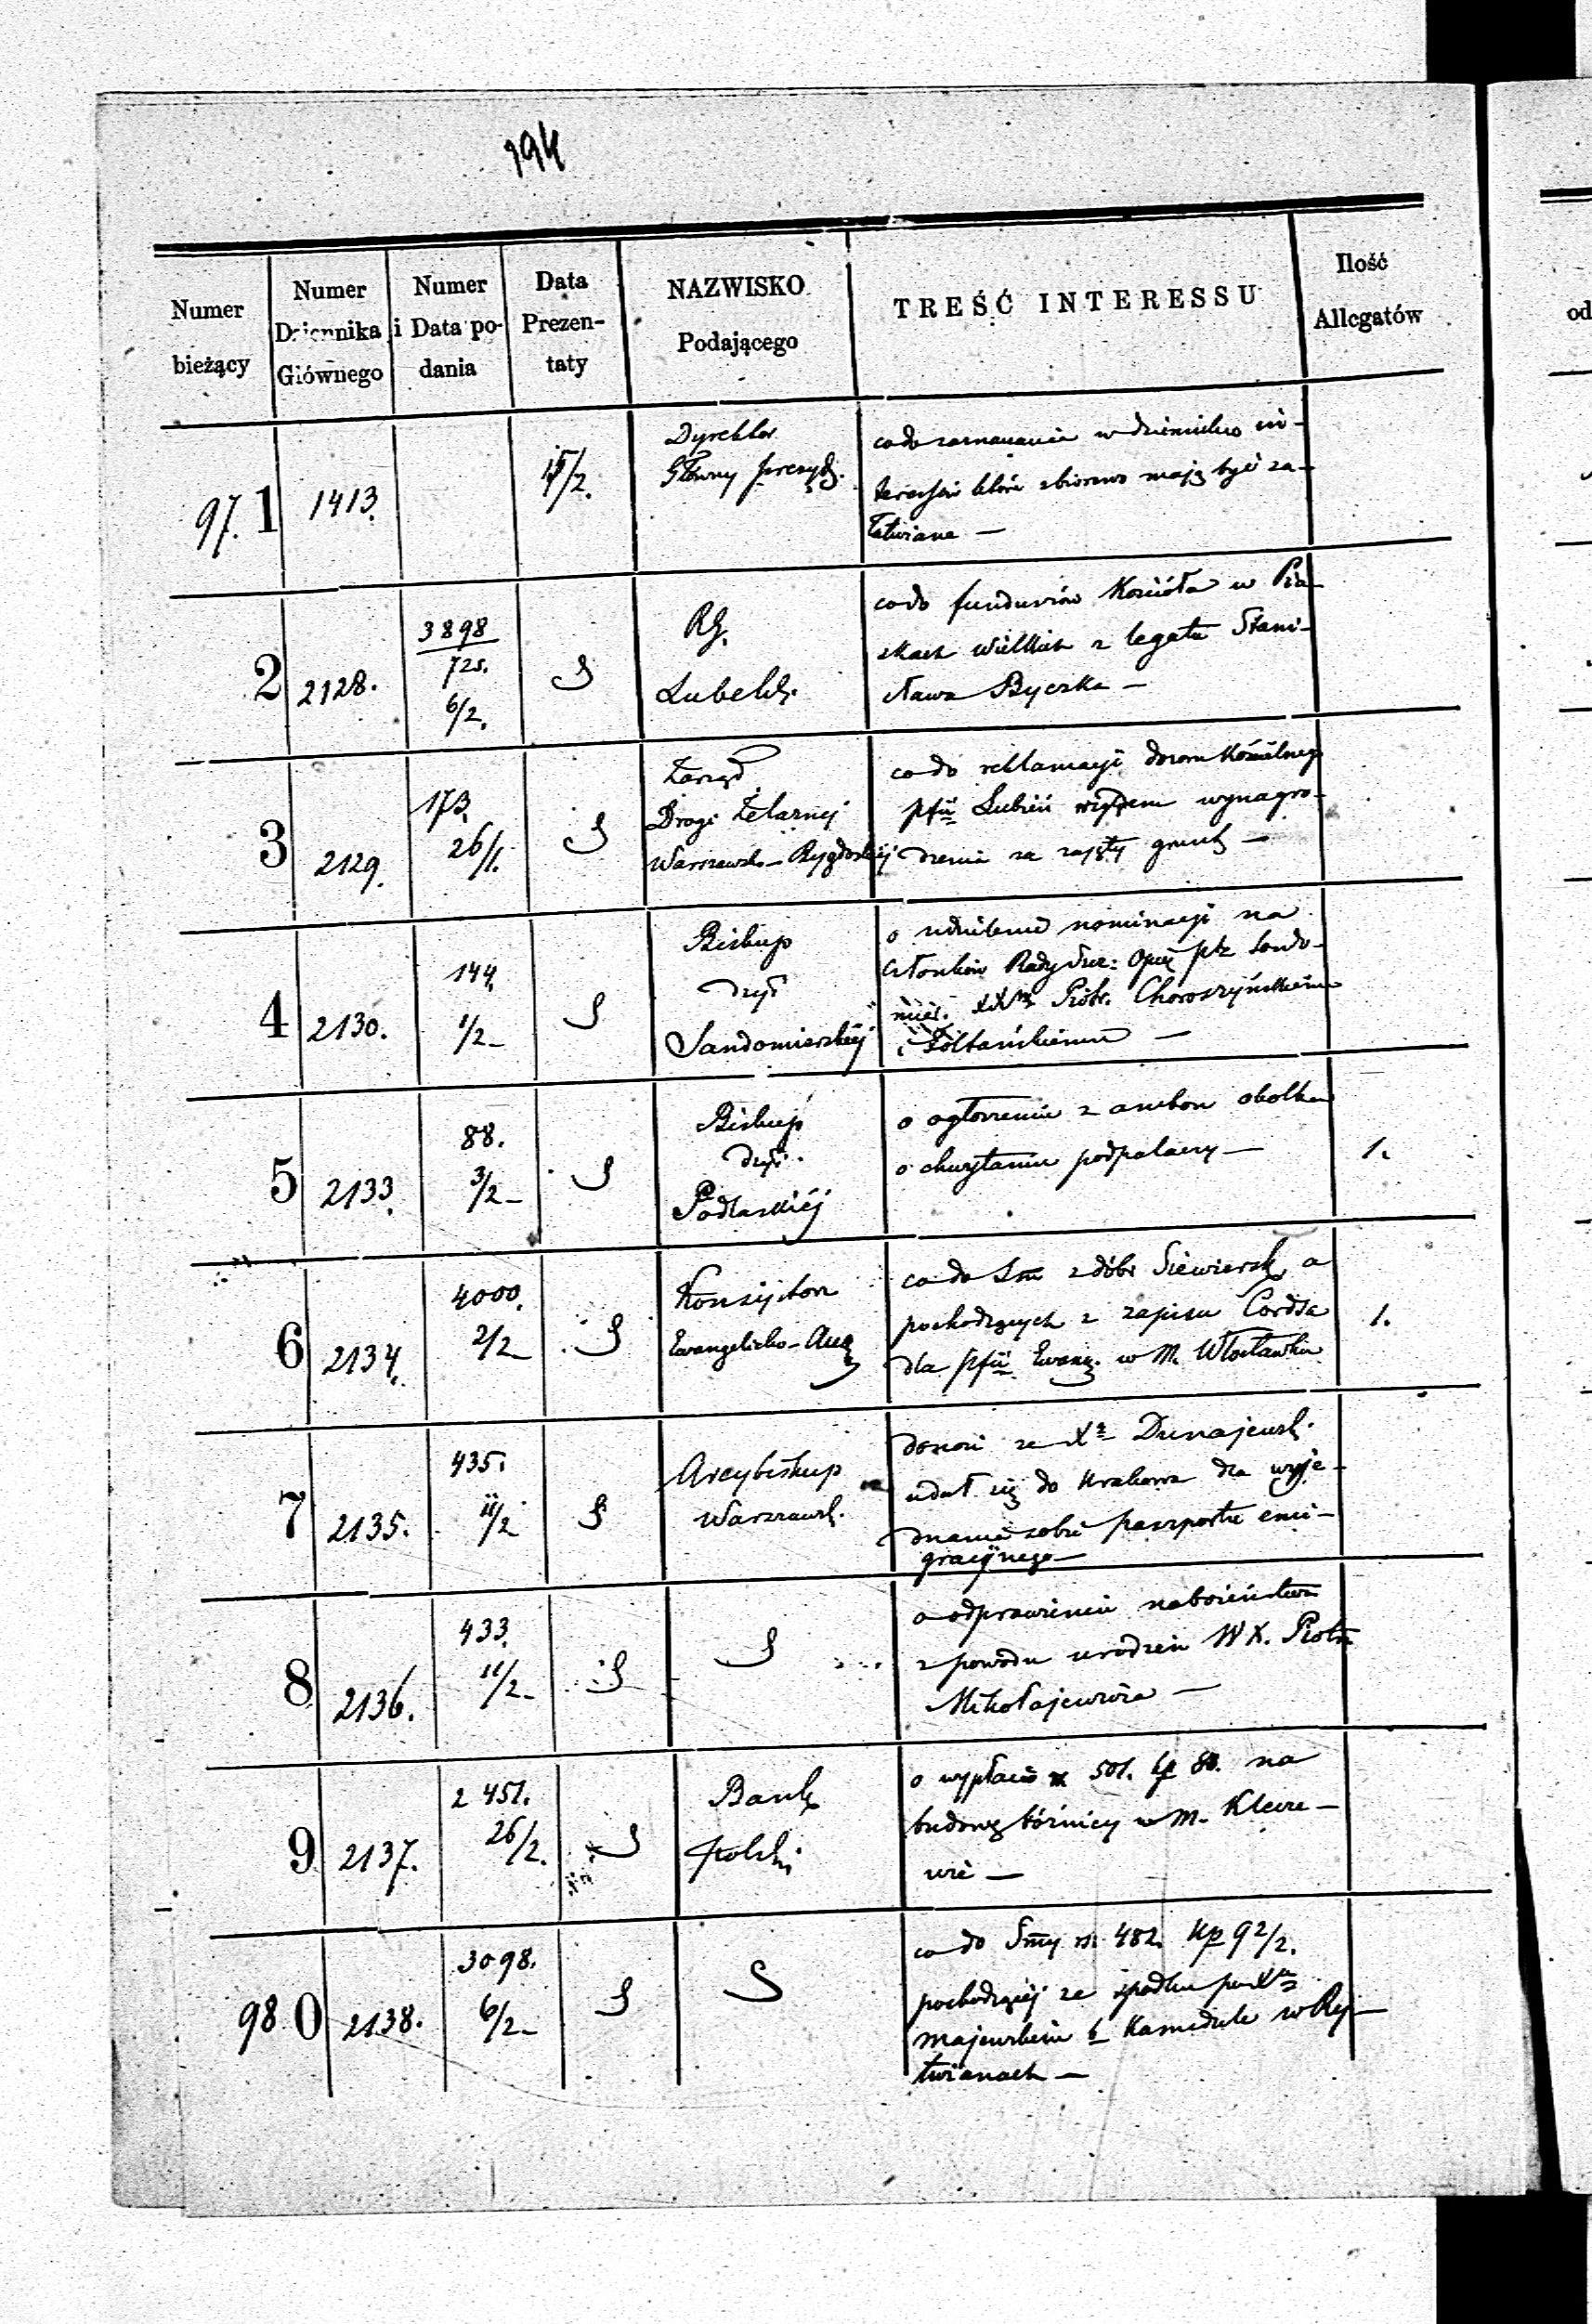 194
Numer bieżący
Numer Dziennika Głównego
Numer i Data podania
Data Prezentaty
NAZWISKO Podającego
TREŚĆ INTERESSU
Ilość Allegatów
97.1
1413.
15/2.
Dyrektor
Główny prezyd.
co do zaznaczania w dzienniku in-
teressów które zbiorowo mają być za-
łatwiane —
2
2128.
3898
725.
6/2.
RG.
Lubelsk.
co do funduszów Kościoła w Pia-
skach Wielkich z legatu Stani-
sława Byczka —
3
2129.
173.
26/1.
Zarząd
Drogi Żelaznej
Warszawsko-Bygdoskiej
co do reklamacyi dozoru Kościelnego
pfii Lubień względem wynagro-
dzenia za zajęty grunt —
4
2130.
144.
1/2 -
Biskup
dyec
Sandomierskiej
o udzielenie nominacyi na
Członków Rady Szcz: Opie. ptu Sando-
mier. XX Piotr. Choroszyńskiemu
i Żółtańskiemu —
5
2133.
88.
3/2 -
Biskup
dyec.
Podlaskiej
o ogłoszeniu z ambon
o chwytaniu podpalaczy —
1.
6
2134.
4000.
2/2 -
Konsystorz
Ewangelicko-Aug
co do Sm z dóbr Siewiersk a
pochodzących z zapisu Cordsa
dla pfii Ewang. w M. Włocławku
1.
7
2135.
435.
11/2
Arcybiskup
Warszawsk.
donosi że Xz Dunajewsk.
udał się do Krakowa dla wyje-
dnania sobie paszportu emi-
gracyjnego —
8
2136.
433.
11/2 -
o odprawieniu nabożeństwa
z powodu urodzin WX. Piotra
Mikołajewicza —
9
2137.
2451.
26/2.
Bank
Polski
o wypłacie 501. kp 80. na
budowę bóżnicy w M. Klecze-
wie —
98.0
2138.
3098.
6/2 -
co do Smy rs. 482. kp 92/2.
pochodzącej ze spadku po Xu
Majewskim b Kamedule w Ry-
twianach —